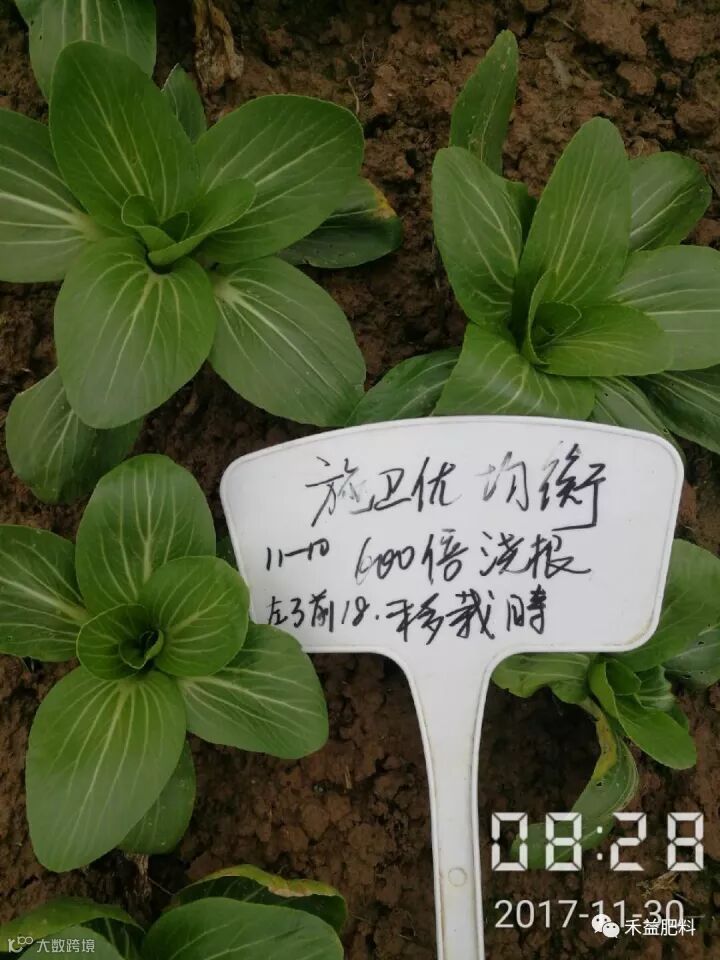 施卫优 均衡
11-10 600倍浇根
左3前18.移栽時
08:28
2017-11-30
禾益肥料
大数跨境